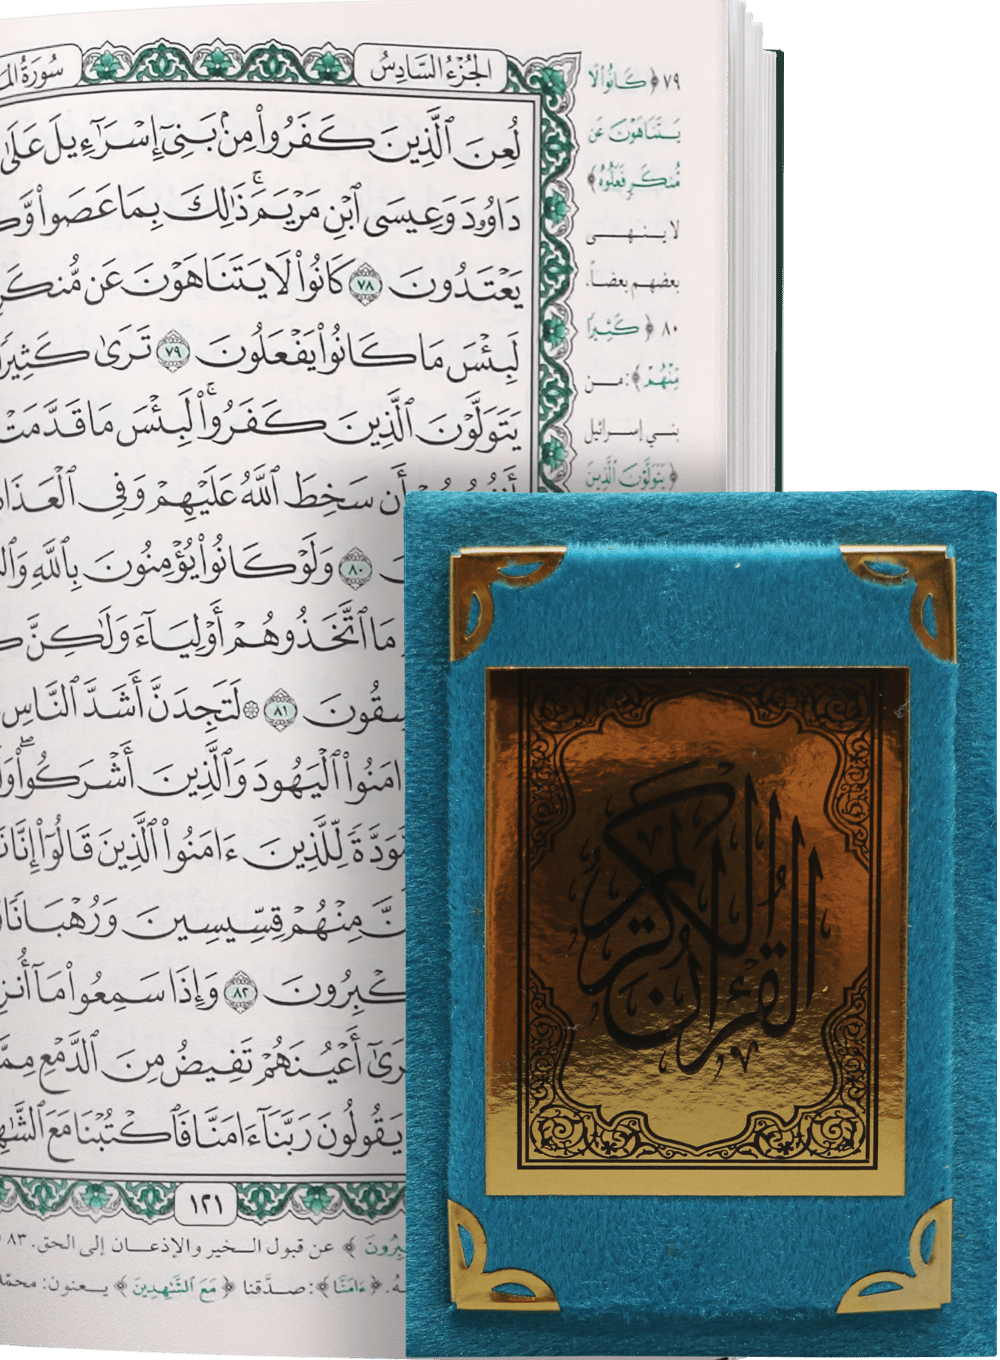 سُورَةُ الْمَا
الجُزْءُ السَّادِسُ
لُعِنَ ٱلَّذِينَ كَفَرُوا۟ مِنۢ بَنِىٓ إِسْرَٰٓءِيلَ عَلَىٰ
دَاوُۥدَ وَعِيسَى ٱبْنِ مَرْيَمَ ۚ ذَٰلِكَ بِمَا عَصَوا۟ وَّكَ
يَعْتَدُونَ ٧٨ كَانُوا۟ لَا يَتَنَاهَوْنَ عَن مُّنكَرٍ
لَبِئْسَ مَا كَانُوا۟ يَفْعَلُونَ ٧٩ تَرَىٰ كَثِيرًا
يَتَوَلَّوْنَ ٱلَّذِينَ كَفَرُوا۟ ۚ لَبِئْسَ مَا قَدَّمَتْ
أَن سَخِطَ ٱللَّهُ عَلَيْهِمْ وَفِى ٱلْعَذَا
٨٠ وَلَوْ كَانُوا۟ يُؤْمِنُونَ بِٱللَّهِ وَٱل
مَا ٱتَّخَذُوهُمْ أَوْلِيَآءَ وَلَٰكِنَّ كَ
سِقُونَ ٨١ ۞ لَتَجِدَنَّ أَشَدَّ ٱلنَّاسِ
ءَامَنُوا۟ ٱلْيَهُودَ وَٱلَّذِينَ أَشْرَكُوا۟ ۖ وَلَ
مَّوَدَّةً لِّلَّذِينَ ءَامَنُوا۟ ٱلَّذِينَ قَالُوٓا۟ إِنَّا نَ
نَّ مِنْهُمْ قِسِّيسِينَ وَرُهْبَانًا
كْبِرُونَ ٨٢ وَإِذَا سَمِعُوا۟ مَآ أُنزِ
رَىٰٓ أَعْيُنَهُمْ تَفِيضُ مِنَ ٱلدَّمْعِ مِمَّا
يَقُولُونَ رَبَّنَآ ءَامَنَّا فَٱكْتُبْنَا مَعَ ٱلشَّٰهِ
١٢١
٧٩ ﴿كَانُوا۟ لَا
يَتَنَاهَوْنَ عَن
مُّنكَرٍ فَعَلُوهُ﴾
لا ينهى
بعضهم بعضاً.
٨٠ ﴿كَثِيرًا
مِّنْهُمْ﴾: من
بني إسرائيل
﴿يَتَوَلَّوْنَ ٱلَّذِينَ
كْبِرُونَ﴾ عن قبول الخير والإذعان إلى الحق. ٨٣
﴿ءَامَنَّا﴾: صدَّقنا ﴿مَعَ ٱلشَّٰهِدِينَ﴾ يعنون: محمّد
القرآن
الكريم